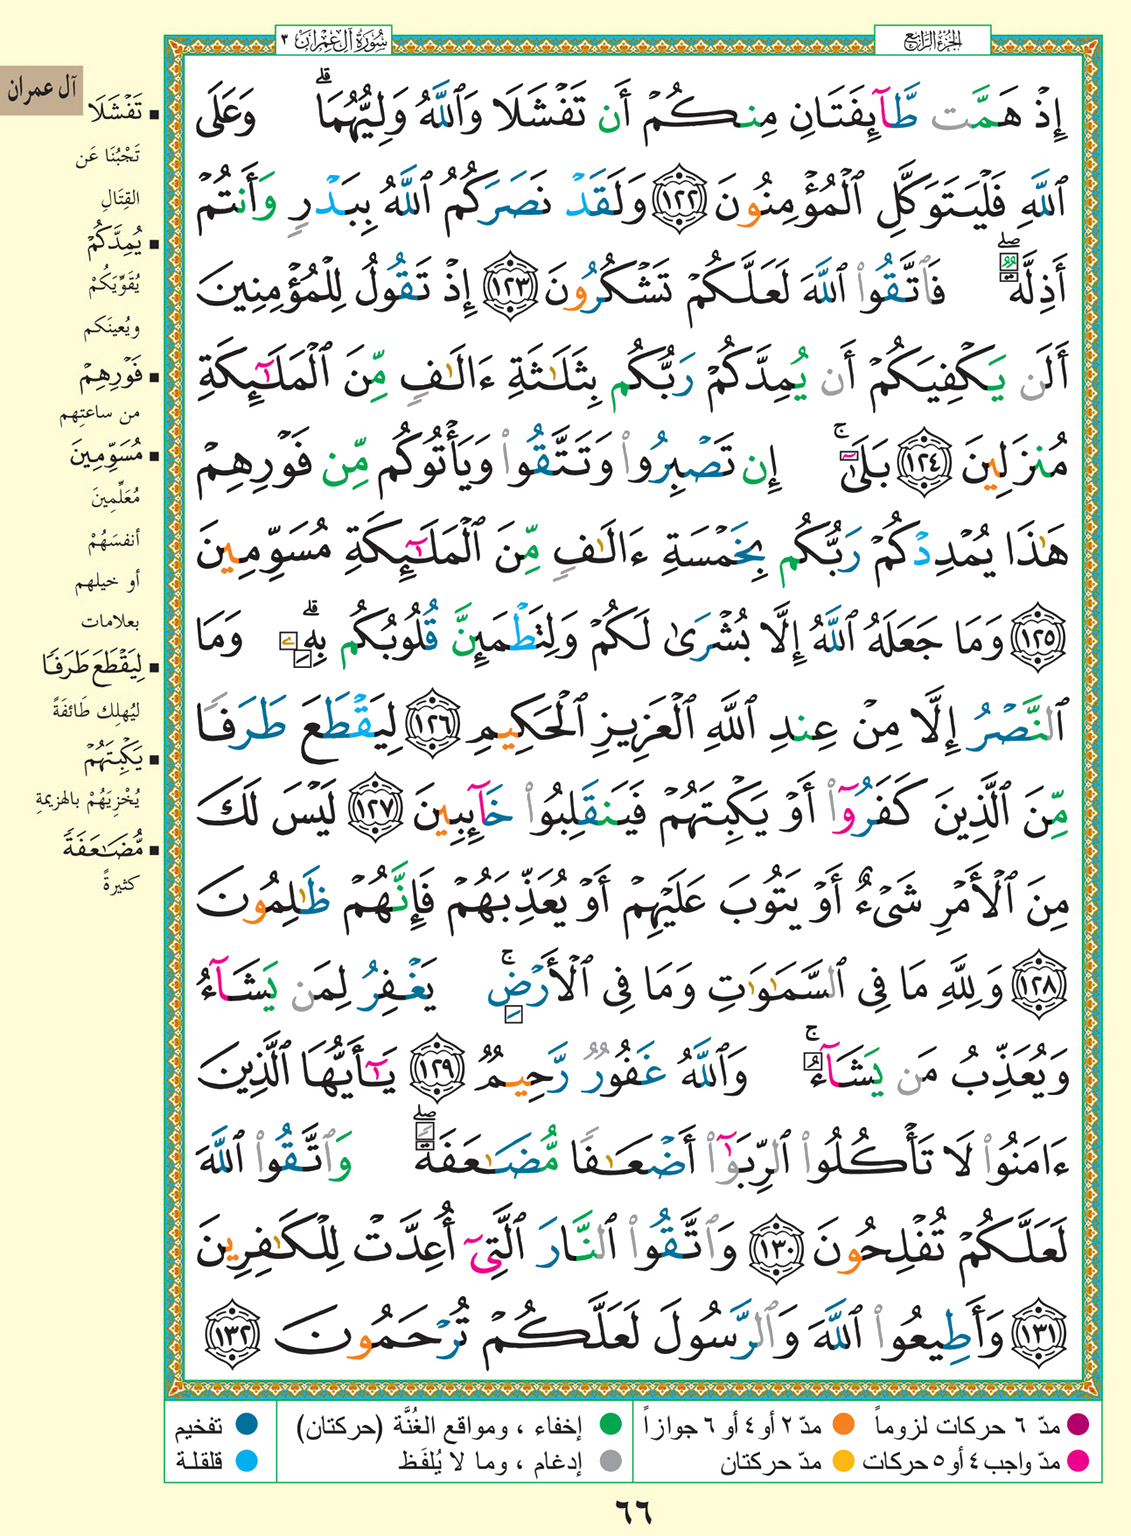 الجزء الرابع
سُورَةُ آلِ عِمْرَانَ ٣
آل عمران
إِذْ هَمَّت طَّآئِفَتَانِ مِنكُمْ أَن تَفْشَلَا وَٱللَّهُ وَلِيُّهُمَاۗ وَعَلَى
ٱللَّهِ فَلْيَتَوَكَّلِ ٱلْمُؤْمِنُونَ ١٢٢ وَلَقَدْ نَصَرَكُمُ ٱللَّهُ بِبَدْرٍ وَأَنتُمْ
أَذِلَّةٌۖ فَٱتَّقُوا۟ ٱللَّهَ لَعَلَّكُمْ تَشْكُرُونَ ١٢٣ إِذْ تَقُولُ لِلْمُؤْمِنِينَ
أَلَن يَكْفِيَكُمْ أَن يُمِدَّكُمْ رَبُّكُم بِثَلَٰثَةِ ءَالَٰفٍ مِّنَ ٱلْمَلَٰٓئِكَةِ
مُنزَلِينَ ١٢٤ بَلَىٰٓۚ إِن تَصْبِرُوا۟ وَتَتَّقُوا۟ وَيَأْتُوكُم مِّن فَوْرِهِمْ
هَٰذَا يُمْدِدْكُمْ رَبُّكُم بِخَمْسَةِ ءَالَٰفٍ مِّنَ ٱلْمَلَٰٓئِكَةِ مُسَوِّمِينَ
١٢٥ وَمَا جَعَلَهُ ٱللَّهُ إِلَّا بُشْرَىٰ لَكُمْ وَلِتَطْمَئِنَّ قُلُوبُكُم بِهِۦۗ وَمَا
ٱلنَّصْرُ إِلَّا مِنْ عِندِ ٱللَّهِ ٱلْعَزِيزِ ٱلْحَكِيمِ ١٢٦ لِيَقْطَعَ طَرَفًا
مِّنَ ٱلَّذِينَ كَفَرُوٓا۟ أَوْ يَكْبِتَهُمْ فَيَنقَلِبُوا۟ خَآئِبِينَ ١٢٧ لَيْسَ لَكَ
مِنَ ٱلْأَمْرِ شَىْءٌ أَوْ يَتُوبَ عَلَيْهِمْ أَوْ يُعَذِّبَهُمْ فَإِنَّهُمْ ظَٰلِمُونَ
١٢٨ وَلِلَّهِ مَا فِى ٱلسَّمَٰوَٰتِ وَمَا فِى ٱلْأَرْضِۚ يَغْفِرُ لِمَن يَشَآءُ
وَيُعَذِّبُ مَن يَشَآءُۚ وَٱللَّهُ غَفُورٌ رَّحِيمٌ ١٢٩ يَٰٓأَيُّهَا ٱلَّذِينَ
ءَامَنُوا۟ لَا تَأْكُلُوا۟ ٱلرِّبَوٰٓا۟ أَضْعَٰفًا مُّضَٰعَفَةًۖ وَٱتَّقُوا۟ ٱللَّهَ
لَعَلَّكُمْ تُفْلِحُونَ ١٣٠ وَٱتَّقُوا۟ ٱلنَّارَ ٱلَّتِىٓ أُعِدَّتْ لِلْكَٰفِرِينَ
١٣١ وَأَطِيعُوا۟ ٱللَّهَ وَٱلرَّسُولَ لَعَلَّكُمْ تُرْحَمُونَ ١٣٢
تَفْشَلَا
تَجْبُنَا عَن
القِتَالِ
يُمِدَّكُمْ
يُقَوِّيَكُمْ
ويُعينَكم
فَوْرِهِمْ
من ساعتِهم
مُسَوِّمِينَ
مُعَلِّمِينَ
أنفسَهُمْ
أو خيلهم
بعلامات
لِيَقْطَعَ طَرَفًا
ليُهلِك طَائفَةً
يَكْبِتَهُمْ
يُخْزِيَهُمْ بالهزيمةِ
مُّضَٰعَفَةً
كثيرةً
مدّ ٦ حركات لزوماً
مدّ ٢ أو ٤ أو ٦ جوازاً
إخفاء ، ومواقع الغُنَّة (حركتان)
تفخيم
مدّ واجب ٤ أو ٥ حركات
مدّ حركتان
إدغام ، وما لا يُلفَظ
قلقلة
٦٦